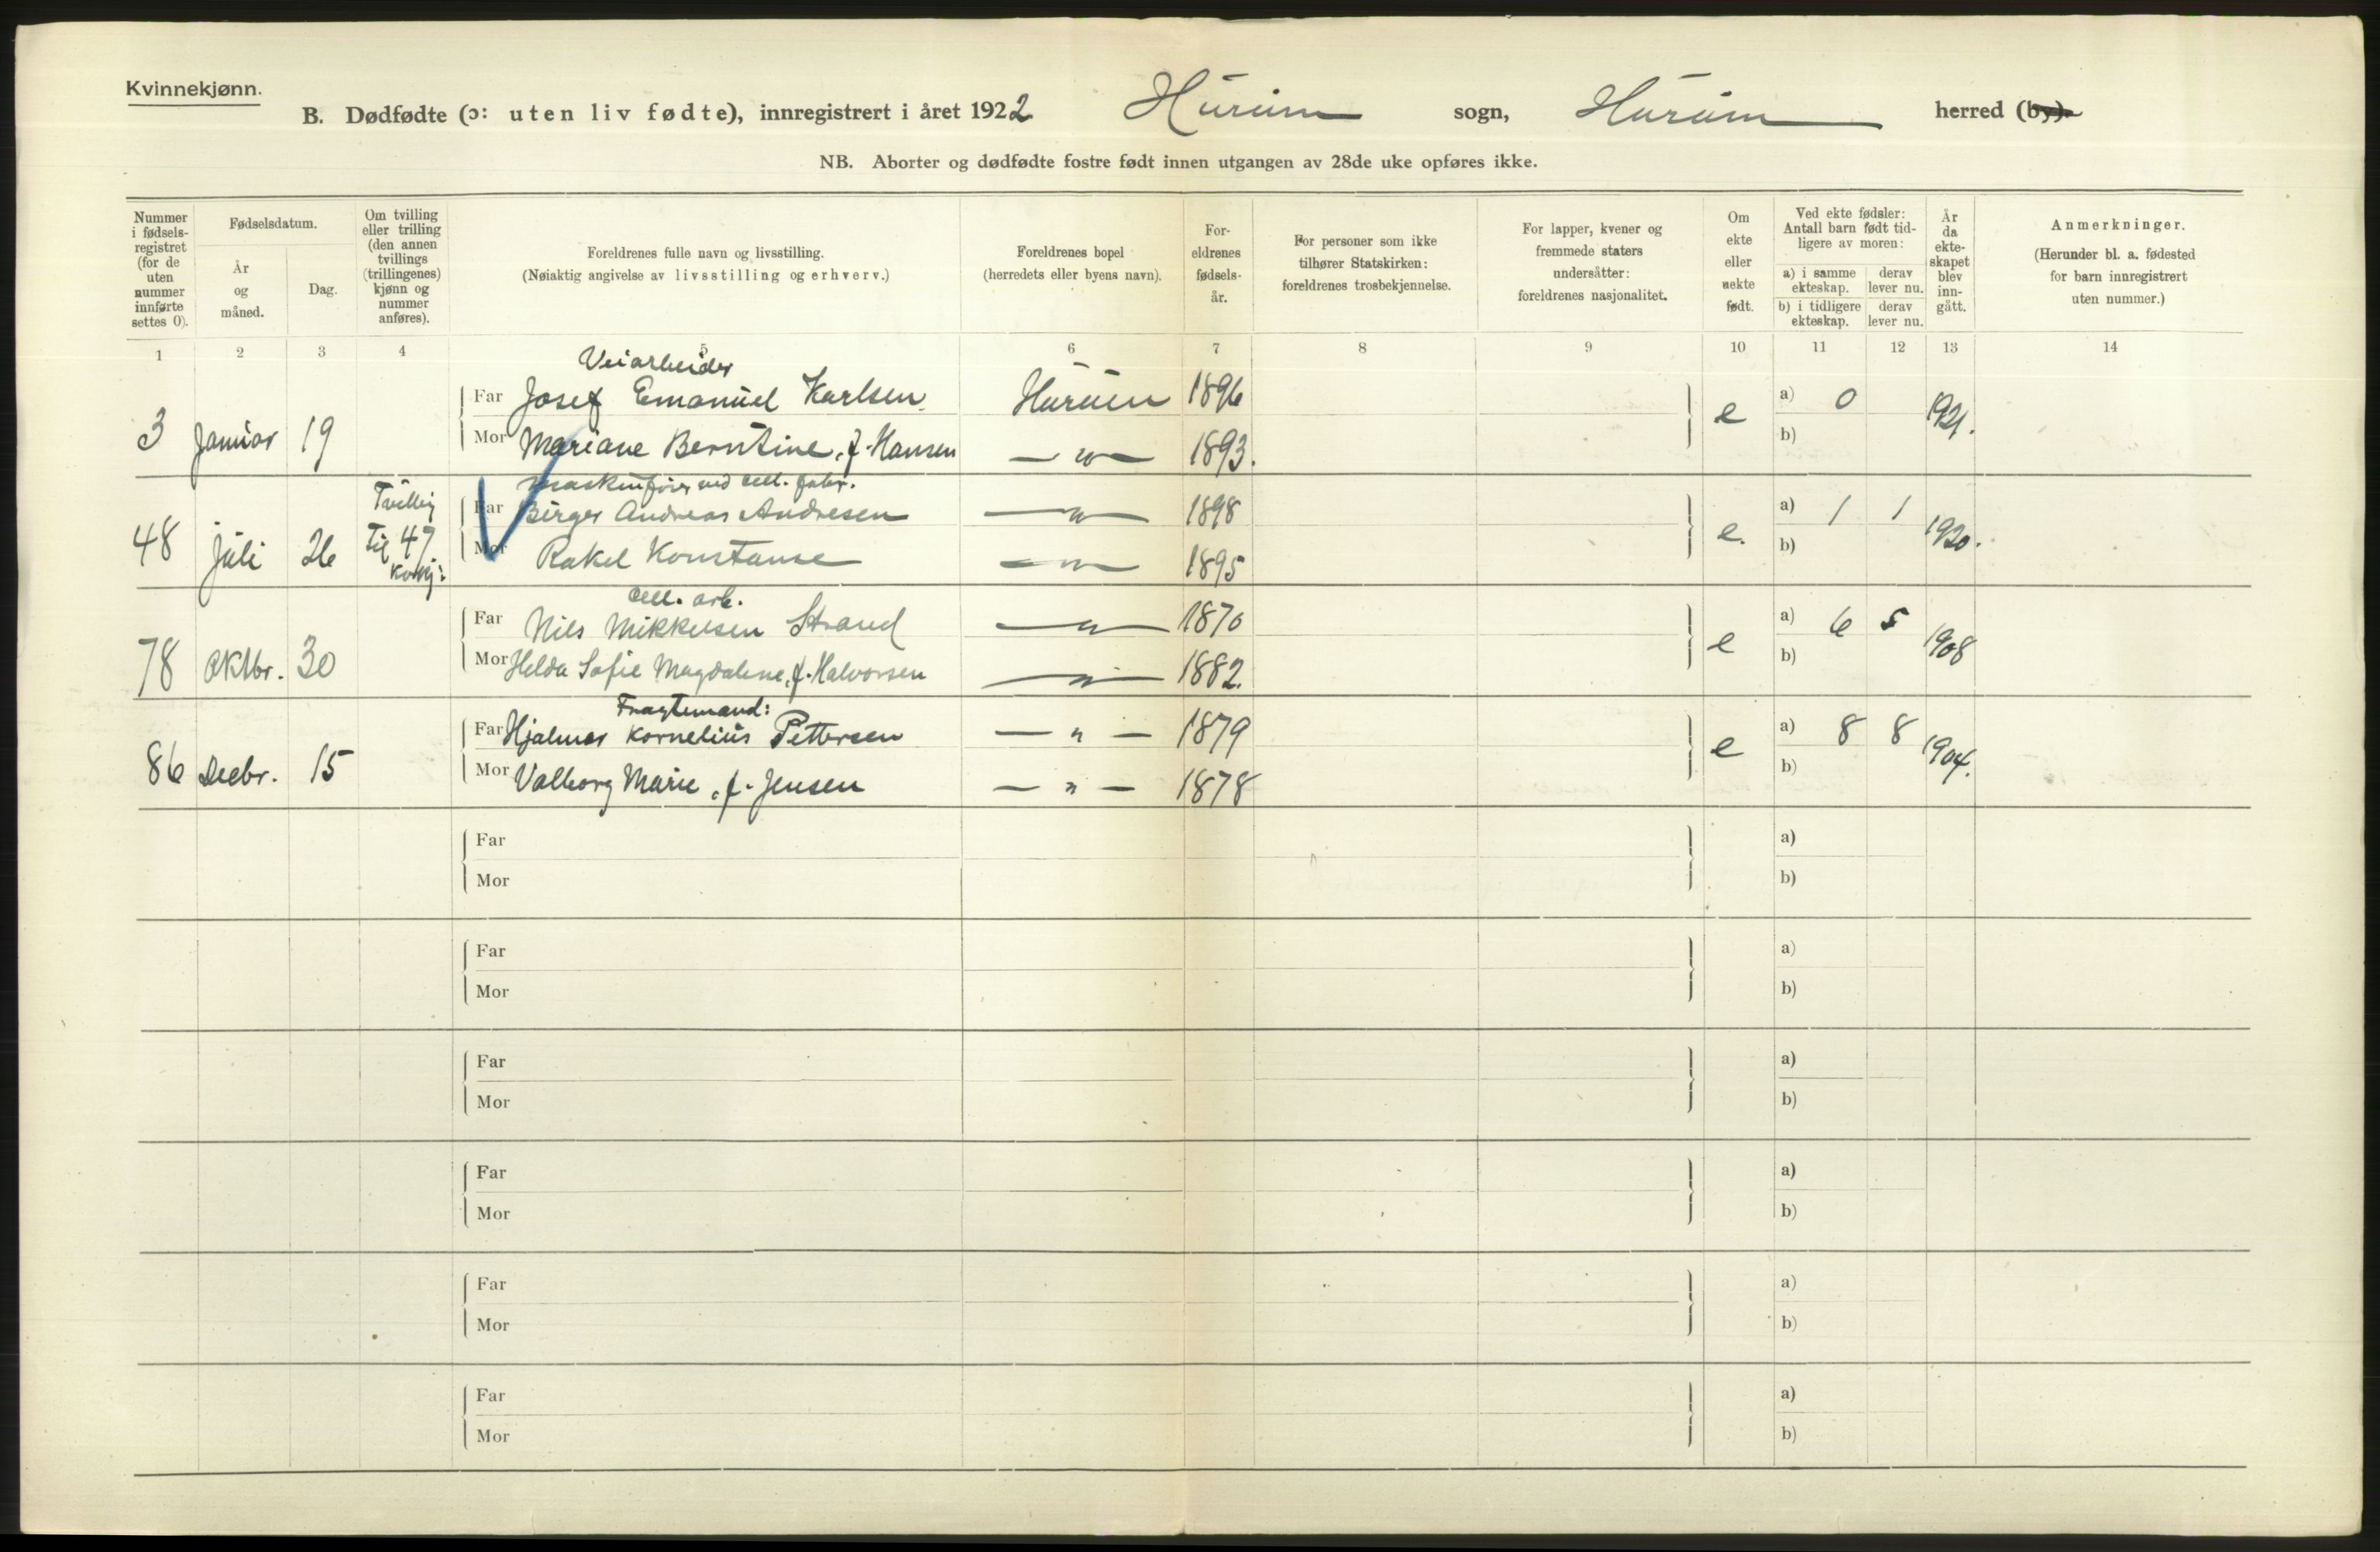 Kvinnekjønn.
B. Dødfødte (ɔ: uten liv fødte), innregistrert i året 1922 Hurum sogn, Hurum herred (by).
NB. Aborter og dødfødte fostre født innen utgangen av 28de uke opføres ikke.
Nummer i fødsels-registret (for de uten nummer innførte settes 0).
Fødselsdatum.
År og måned.
Dag.
Om tvilling eller trilling (den annen tvillings (trillingenes) kjønn og nummer anføres).
Foreldrenes fulle navn og livsstilling.
(Nøiaktig angivelse av livsstilling og erhverv.)
Foreldrenes bopel
(herredets eller byens navn).
For-eldrenes fødsels-år.
For personer som ikke tilhører Statskirken: foreldrenes trosbekjennelse.
For lapper, kvener og fremmede staters undersåtter: foreldrenes nasjonalitet.
Om ekte eller uekte født.
Ved ekte fødsler: Antall barn født tid-ligere av moren:
a) i samme ekteskap. derav lever nu.
b) i tidligere ekteskap. derav lever nu.
År da ekte-skapet blev inn-gått.
Anmerkninger.
(Herunder bl. a. fødested for barn innregistrert uten nummer.)
1 2 3 4 5 6 7 8 9 10 11 12 13 14
Veiarbeider
Far Josef Emanuel Karlsen Hurum 1896 a) 0
3 Januar 19 e 1921.
Mor Mariane Berntine, f. Hansen — " — 1893. b)
Maskinfører ved cell. fabr.
Tvilling
Far Birger Andreas Andresen — " — 1898 a) 1 1
48 Juli 26 til 47 e. 1920.
Mor Rakel Konstanse — " — 1895 b)
cell. arb.
Far Nils Mikkelsen Strand — " — 1870 a) 6 5
78 Oktbr. 30 e 1908
Mor Helda Sofie Magdalene, f. Halvorsen — " — 1882. b)
Fragtemand:
Far Hjalmar Kornelius Pettersen — " — 1879 a) 8 8
86 Decbr. 15 e 1904.
Mor Valborg Marie, f. Jensen — " — 1878 b)
Far a)
Mor b)
Far a)
Mor b)
Far a)
Mor b)
Far a)
Mor b)
Far a)
Mor b)
Far a)
Mor b)